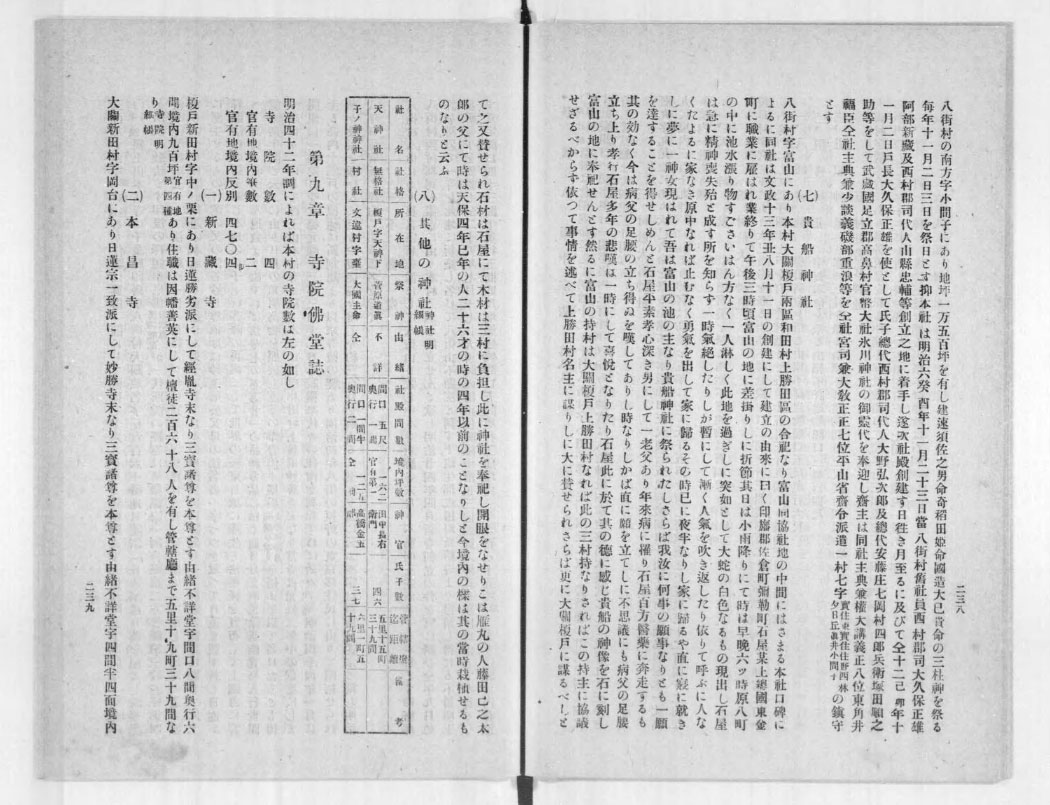 二三八
八街村の南方字小間子にあり地坪一万五百坪を有し建速須佐之男命奇稻田姬命國造大己貴命の三柱神を祭る
每年十一月二日三日を祭日とす抑本社は明治六癸酉年十一月二十三日當八街村舊社員西村郡司大久保正雄
阿部新藏及西村郡司代人山縣忠輔等創立之地に着手し遂次社殿創建す日往き月至るに及びて仝十二己卯年十
一月二日戶長大久保正雄を使として氏子總代西村郡司代人大野弘次郎及總代安藤庄七岡村四郎兵衛塚田順之
助等をして武藏國足立郡高鼻村官幣大社氷川神社の御靈代を奉迎し齋主は同社主典兼權大講義正八位東角井
福臣仝社主典兼少談義磯部重浪等を仝社宮司兼大敎正正七位平山省齋令派遣一村七字の鎮守
とす
(七)貴船神社
八街村字富山にあり本村大關榎戶兩區和田村上勝田區の合祀なり富山同協社地の中間にはさまる本社口碑に
よるに同社は文政十三年丑八月十一日の創建にして建立の由來に曰く印旛郡佐倉町彌勒町石屋某上總國東金
町に職業に雇はれ業終りて午後三時頃富山の地に差掛りしに折節其日は小雨降りにて時は早晚六ッ時原八町
の中に池水漲り物すごさいはん方なく一人淋しく此地を過ぎしに突如として大蛇の白色なるもの現出し石屋
は急に精神喪失殆と成す所を知らず一時氣絕したりしが暫にして漸く人氣を吹き返したり依りて呼ぶに人な
くたよるに家なき原中なれば止むなく勇氣を出して家に歸るその時已に夜半なりし家に歸るや直に寢に就き
しに夢に一神女現はれて吾は富山の池の主なり貴船神社に祭られたしさらば我汝に何事の願事なりとも一願
を達することを得せしめんと石屋半素孝心深き男にして一老父あり年來病に罹り石屋百方醫藥に奔走するも
其の効なく今は病父の足腰の立ち得ぬを嘆してありし時なりしかば直に願を立てしに不思議にも病父の足腰
立ち上り孝行石屋多年の悲嘆は一時にして喜悅となりたり石屋此に於て其の德に感じ貴船の神像を石に刻し
富山の地に奉祀せんとす然るに富山の持村は大關榎戶上勝田村なれば此の三村持なりされはこの持主に協議
せざるべからず依つて事情を述べて上勝田村名主に謀りしに大に賛せられさらば更に大關榎戶に謀るべしと
て之又賛せられ石材は石屋にて木材は三村に負担し此に神社を奉祀し開眼をなせりこは雁丸の人藤田己之太
郎の父にて時は天保四年巳年の人二十六才の時の四年以前のことなりしと今境內の樑は其の當時栽植せるも
のなりと云ふ
(八)其他の神社 神社明細帳
社名 社格 所在地 祭神 由緒 社殿間數 境內坪數 神官 氏子數 管轄廳迄距離 備考
天神社 無格社 榎戶字天神下 菅原道眞 不詳 間口五尺 奧行一間 一六二 官有第一 田中長右衛門 四六 五里十五町三十九間
子ノ神神社 村社 文違村字臺 大國主命 仝 間口一間半 奧行二間 一二九 仝 高橋金五郎 三七 六里一町五十九間
第九章 寺院佛堂誌
明治四十二年調によれば本村の寺院數は左の如し
寺院數 四
官有地境內筆數 二
官有地境內反別 四七〇四步
(一)新藏寺
榎戶新田村字中ノ栗にあり日蓮勝劣派にして經胤寺末なり三寳諸尊を本尊とす由緒不詳堂宇間口八間奥行六
間境內九百坪官有地第四種あり住職は因幡善英にして檀徒二百六十八人を有し管轄廳まで五里十九町三十九間な
り寺院明細帳
(二)本昌寺
大關新田村字岡台にあり日蓮宗一致派にして妙勝寺末なり三寳諸尊を本尊とす由緒不詳堂宇四間半四面境內
二三九